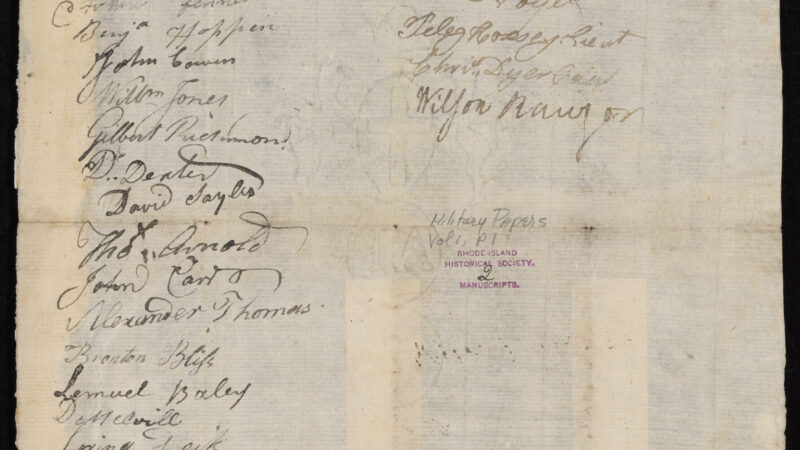 Benjᵃ Hoppen
John Cowen
Willm Jones
Gilbert Richmond
D. Dexter
David Sayles
Thoˢ Arnold
John Carr
Alexander Thomas
Brenton Bliss
Lemuel Baley
D Melvill
Peleg Hoxsey Lieut
Chris Dyer
Wilson Rawson
Military Papers
Vol 1, P 1
RHODE ISLAND
HISTORICAL SOCIETY.
2
MANUSCRIPTS.